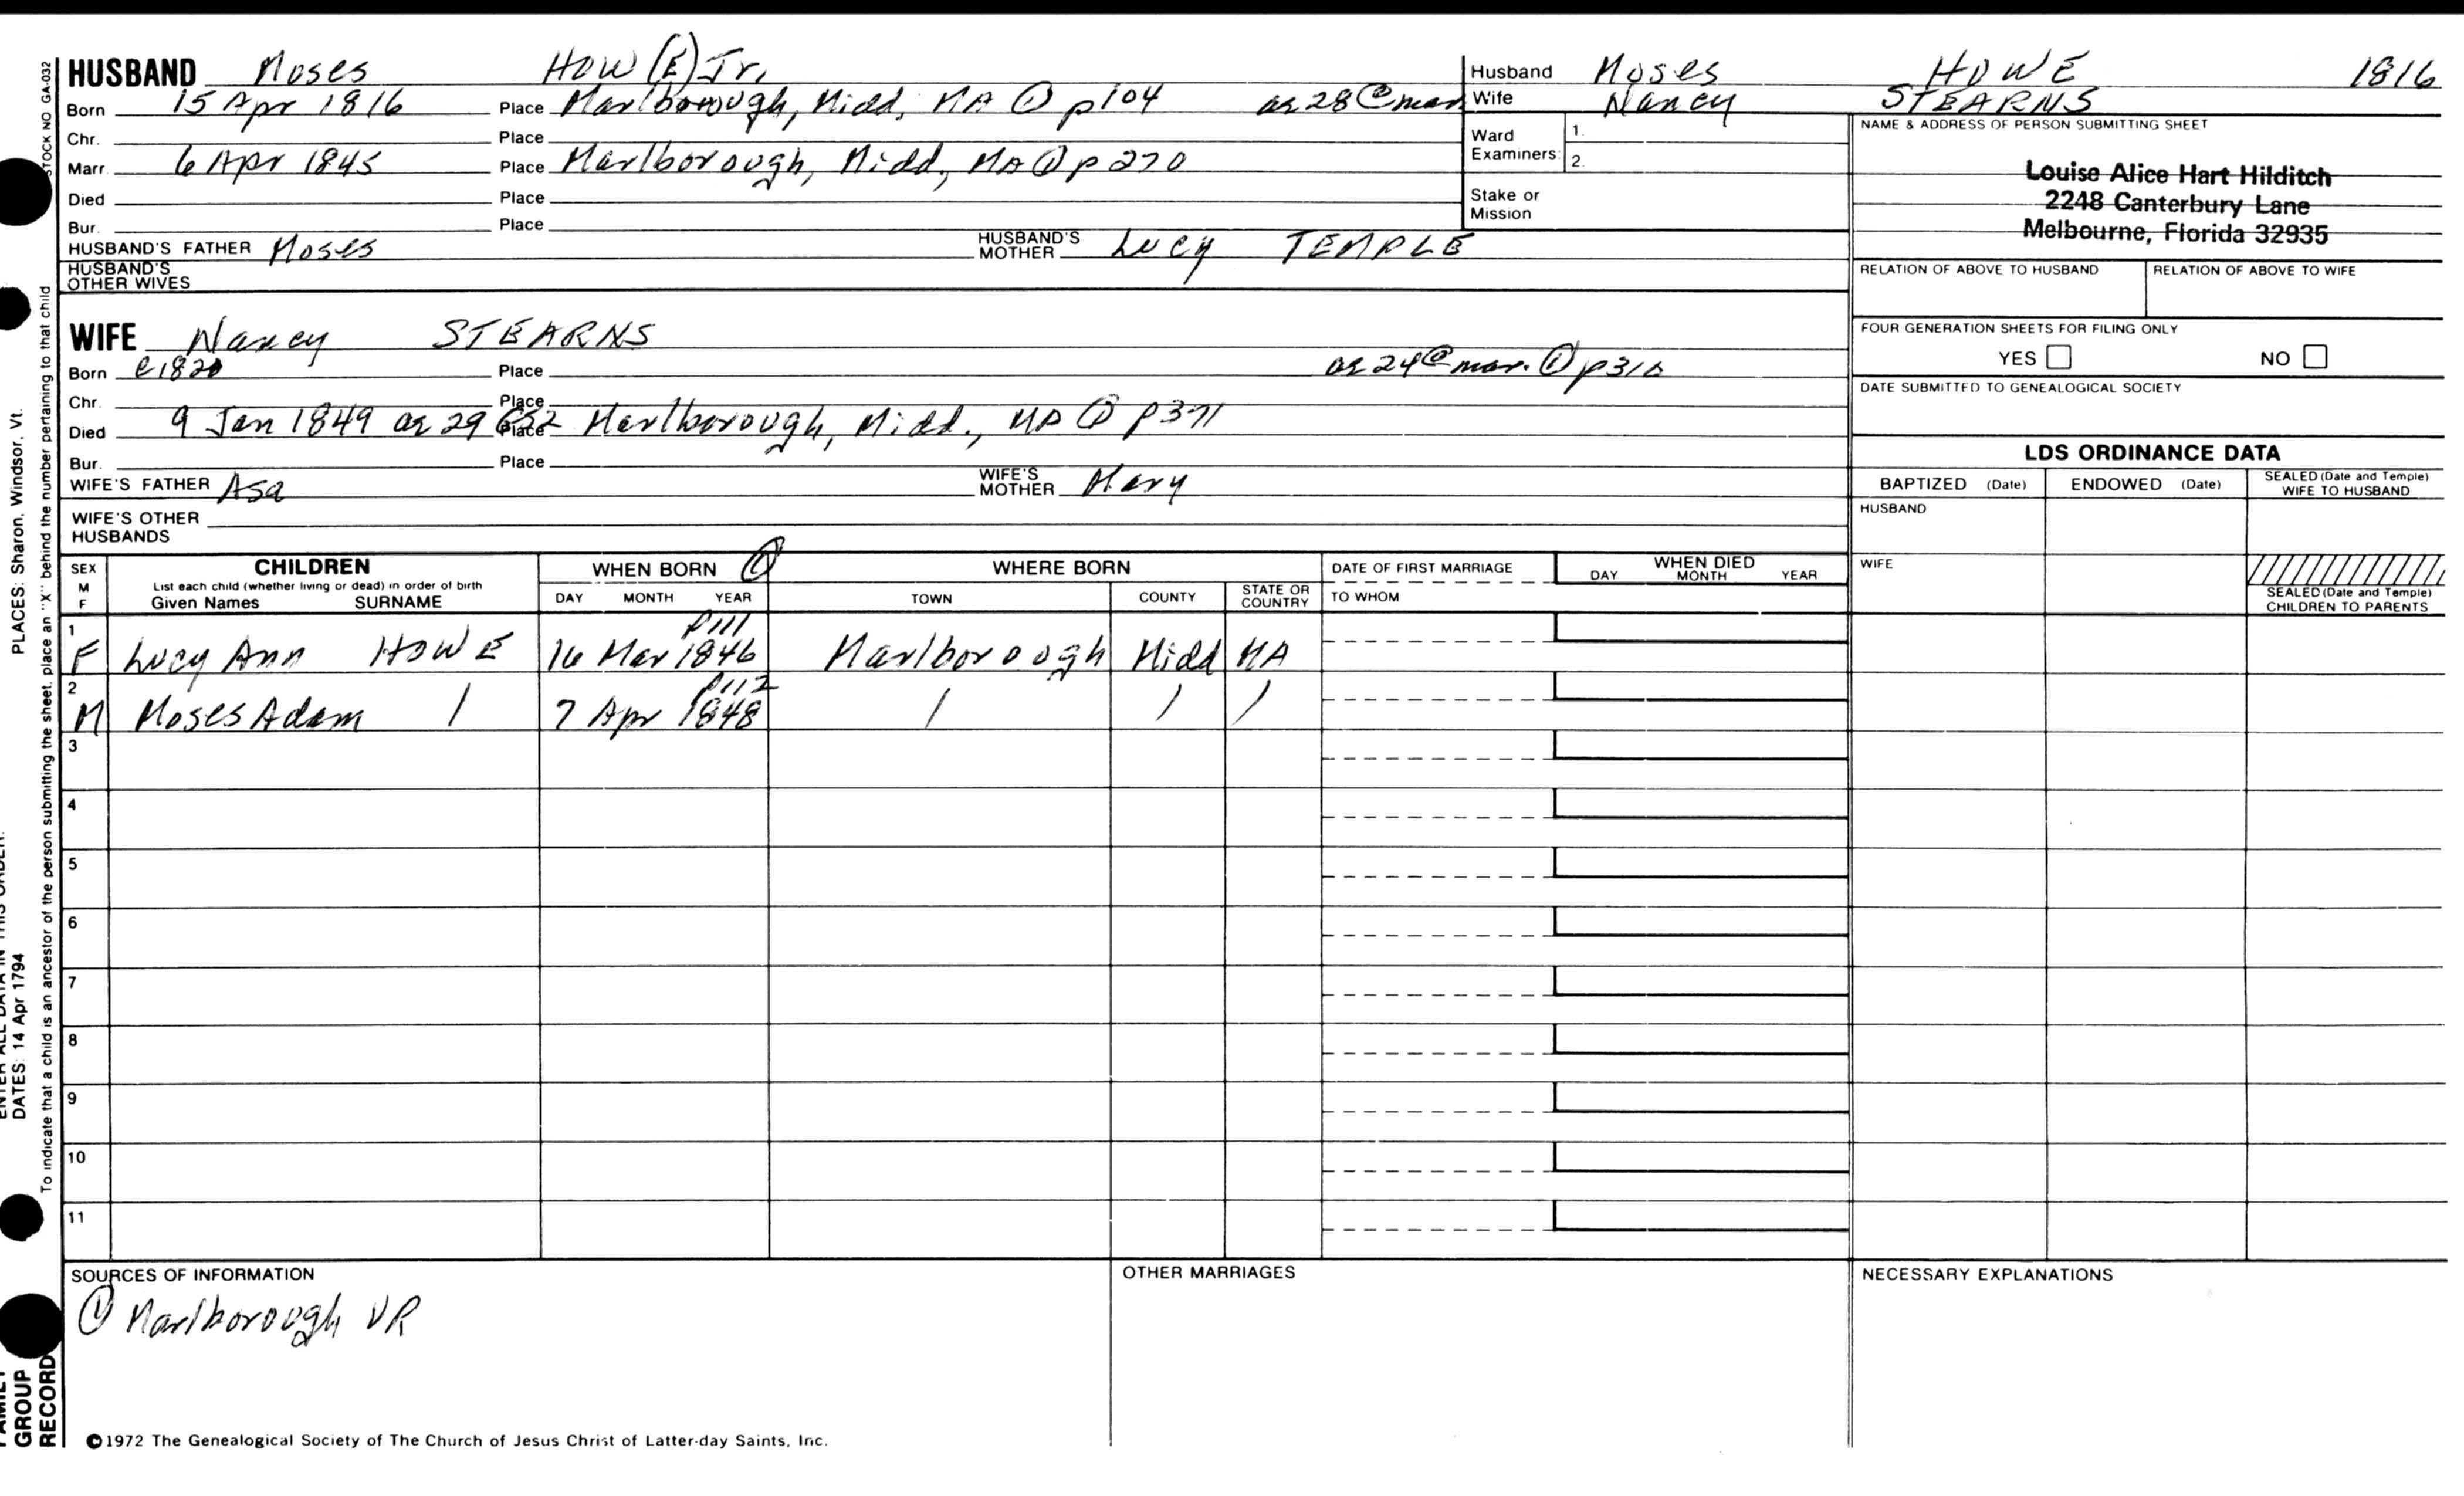 HUSBAND Moses How(E) Jr.
Born 15 Apr 1816 Place Marlborough, Midd, MA ① p104 ae 28 @ mar
Chr. Place
Marr. 6 Apr 1845 Place Marlborough, Midd, MA ① p 270
Died Place
Bur. Place
HUSBAND'S FATHER Moses HUSBAND'S MOTHER Lucy TEMPLE
HUSBAND'S OTHER WIVES
Husband Moses HOWE 1816
Wife Nancy STEARNS
Ward Examiners: 1.
2.
Stake or Mission
NAME & ADDRESS OF PERSON SUBMITTING SHEET
Louise Alice Hart Hilditch
2248 Canterbury Lane
Melbourne, Florida 32935
RELATION OF ABOVE TO HUSBAND RELATION OF ABOVE TO WIFE
FOUR GENERATION SHEETS FOR FILING ONLY
YES NO
DATE SUBMITTED TO GENEALOGICAL SOCIETY
WIFE Nancy STEARNS
Born c1820 Place ae 24 @ mar. ①
Chr. Place
Died 9 Jan 1849 ae 29 Place Marlborough, Midd., MA ① p371
Bur. Place
WIFE'S FATHER Asa WIFE'S MOTHER Mary
WIFE'S OTHER HUSBANDS
LDS ORDINANCE DATA
BAPTIZED (Date) ENDOWED (Date) SEALED (Date and Temple) WIFE TO HUSBAND
HUSBAND
WIFE
SEALED (Date and Temple) CHILDREN TO PARENTS
SEX M F CHILDREN WHEN BORN ① WHERE BORN DATE OF FIRST MARRIAGE WHEN DIED
List each child (whether living or dead) in order of birth
Given Names SURNAME DAY MONTH YEAR TOWN COUNTY STATE OR COUNTRY TO WHOM DAY MONTH YEAR
p111
1 F Lucy Ann HOWE 16 Mar 1846 Marlborough Midd MA
p112
2 M Moses Adam / 7 Apr 1848 / / /
3
4
5
6
7
8
9
10
11
SOURCES OF INFORMATION OTHER MARRIAGES NECESSARY EXPLANATIONS
① Marlborough VR
©1972 The Genealogical Society of The Church of Jesus Christ of Latter-day Saints, Inc.
STOCK NO GA-032
To indicate that a child is an ancestor of the person submitting the sheet, place an "X" behind the number pertaining to that child
PLACES: Sharon, Windsor, Vt.
ENTER ALL DATA IN THIS ORDER:
DATES: 14 Apr 1794
FAMILY GROUP RECORD